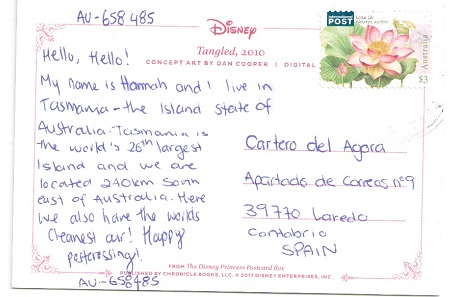 AU-658485
Disney
Tangled, 2010
CONCEPT ART BY DAN COOPER | DIGITAL
International
POST
Australia
$3
Hello, Hello!
My name is Hannah and I live in
Tasmania - the Island state of
Australia. Tasmania is
the world's 26th largest
Island and we are
located 240km South
east of Australia. Here
we also have the worlds
Cleanest air! Happy
postcrossing!
AU-658485
Cartero del Agora
Apartado de Correos nº9
39770 Laredo
Cantabria
SPAIN
FROM The Disney Princess Postcard Box
PUBLISHED BY CHRONICLE BOOKS, LLC. © 2017 DISNEY ENTERPRISES, INC.